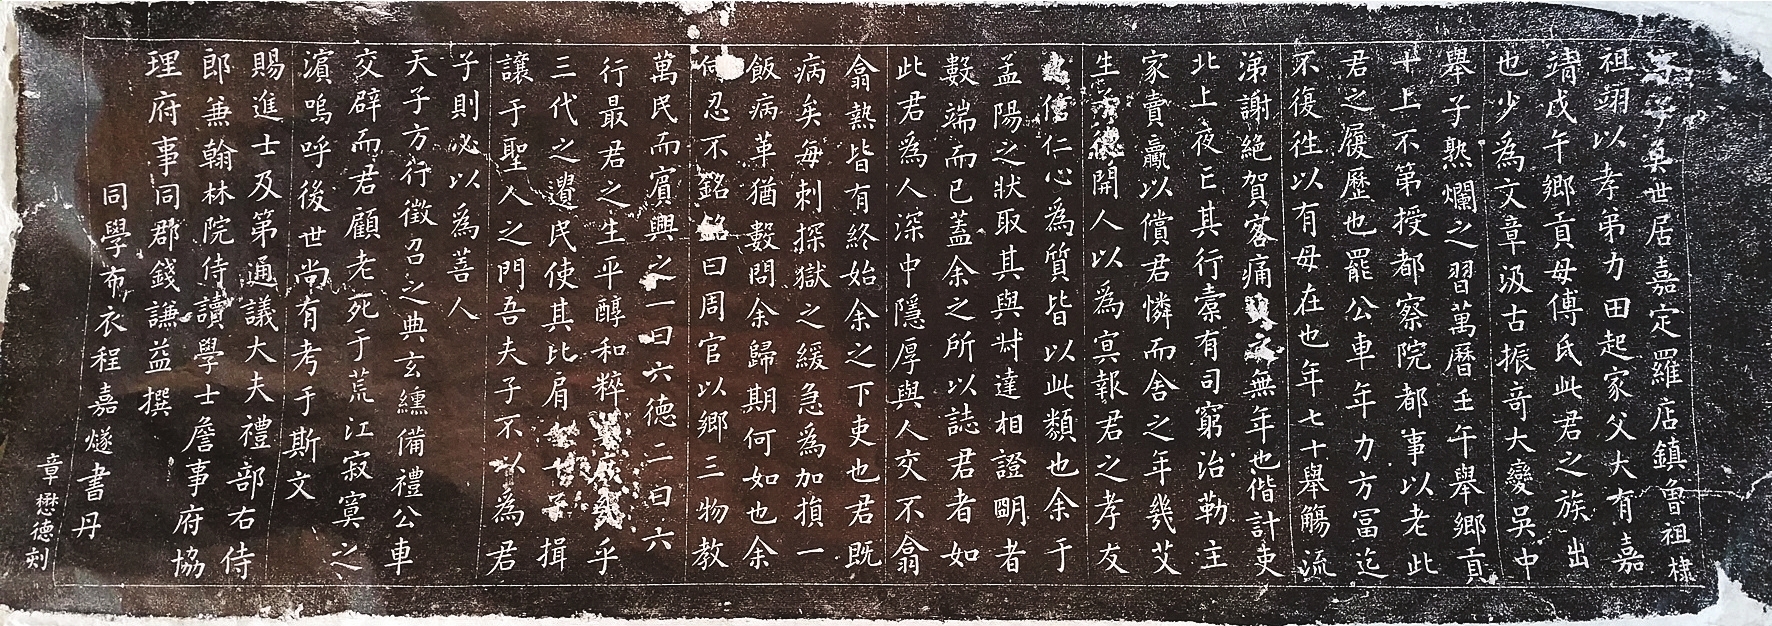 字子魚世居嘉定羅店鎮曾祖棣
祖翊以孝弟力田起家父大有嘉
靖戊午鄉貢母傅氏此君之族出
也少為文章汲古振奇大變吳中
舉子熟爛之習萬曆壬午舉鄉貢
十上不第授都察院都事以老此
君之履歷也罷公車年力方富迄
不復徃以有母在也年七十舉觴流
涕謝絕賀客痛 無年也偕計吏
北上夜亡其行橐有司窮治勒主
家賣贏以償君憐而舍之年幾艾
生子德開人以為冥報君之孝友
忠信仁心為質皆以此類也余于
孟陽之狀取其與尌達相證明者
數端而已蓋余之所以誌君者如
此君為人深中隱厚與人交不翕
翕熱皆有終始余之下吏也君既
病矣每刺探獄之緩急為加損一
飯病革猶數問余歸期何如也余
何忍不銘銘曰周官以鄉三物教
萬民而賓興之一曰六德二曰六
行最君之生平醇和粹 乎
三代之遺民使其比肩 子揖
讓于聖人之門吾夫子不以為君
子則必以為善人
天子方行徵召之典玄纁備禮公車
交辟而君顧老死于荒江寂寞之
濵嗚呼後世尚有考于斯文
賜進士及第通議大夫禮部右侍
郎兼翰林院侍讀學士詹事府協
理府事同郡錢謙益撰
同學布衣程嘉燧書丹
章懋德刻